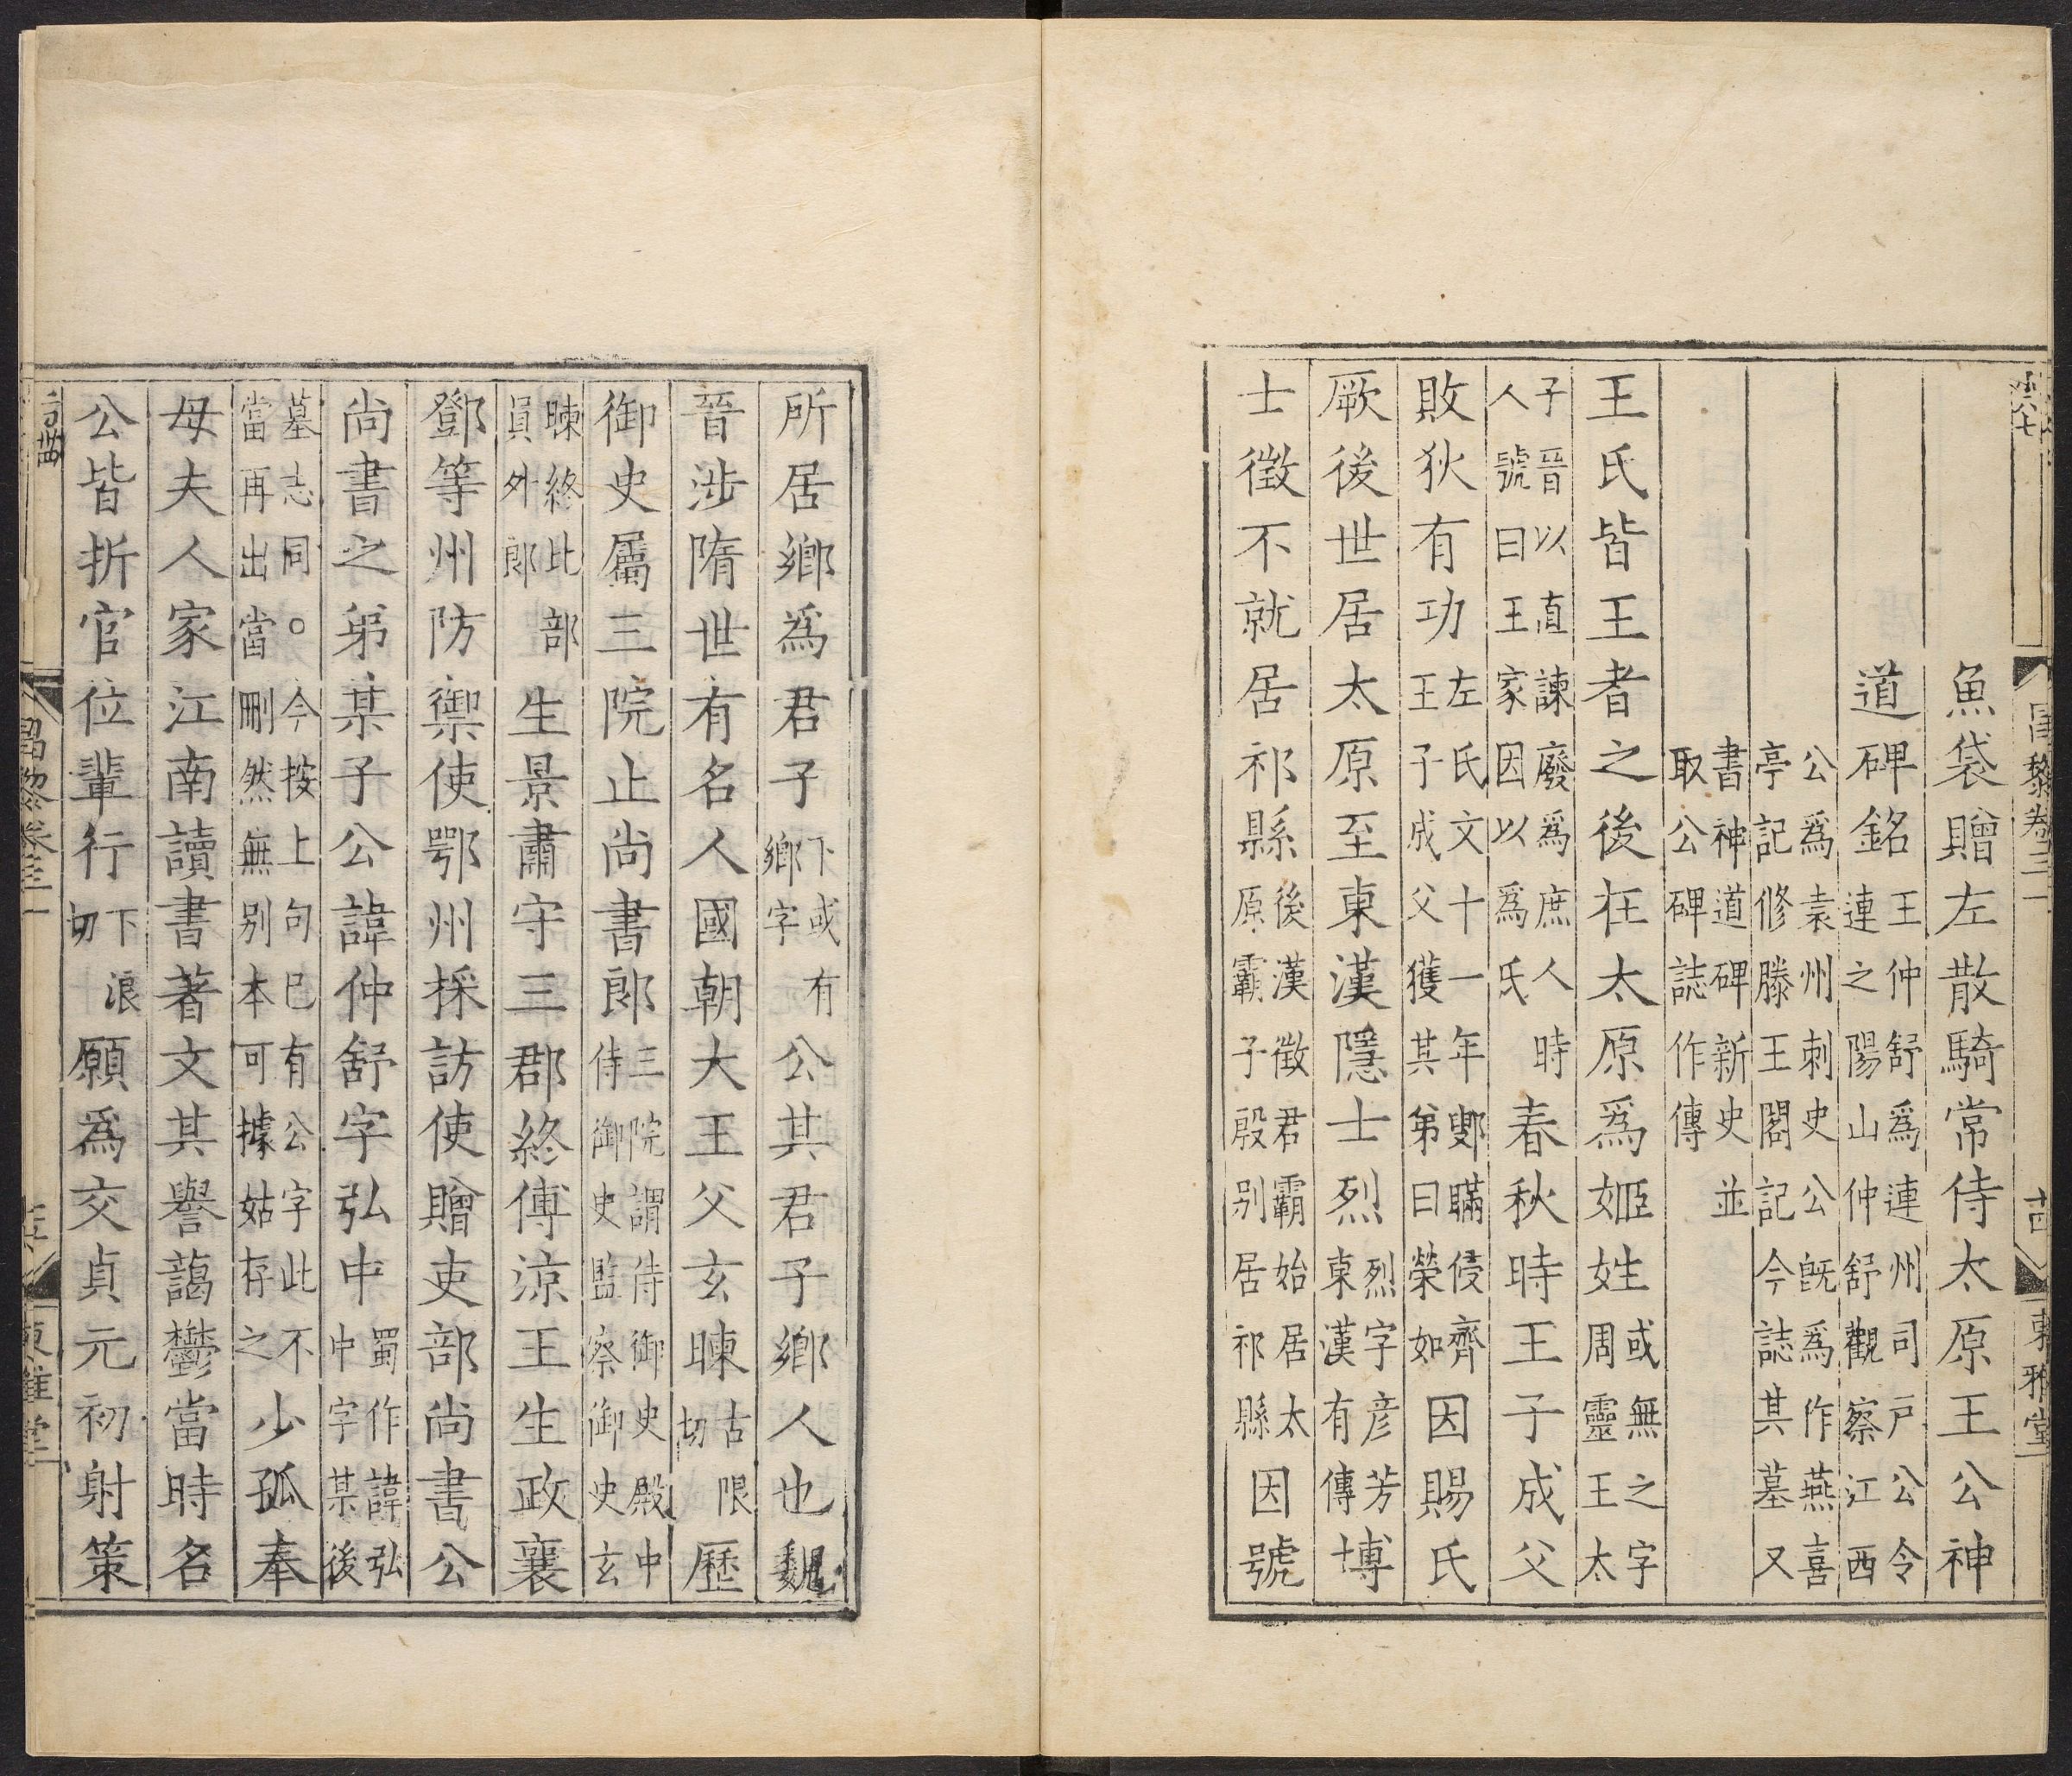 昌黎卷三一 十四 東雅堂
魚袋贈左散騎常侍太原王公神
道碑銘王仲舒爲連州司戸公令連之陽山仲舒觀察江西
公爲袁州刺史公既爲作燕喜亭記修滕王閣記今誌其墓又
書神道碑新史並取公碑誌作傳
王氏皆王者之後在太原爲姬姓或無之字周靈王太
子晉以直諫廢爲庶人時人號曰王家因以爲氏春秋時王子成父
敗狄有功左氏文十一年鄋瞞侵齊王子成父獲其弟曰榮如因賜氏
厥後世居太原至東漢隱士烈烈字彦芳東漢有傳博
士徵不就居祁縣後漢徵君霸始居太原霸子殷别居祁縣因號
所居鄉爲君子下或有鄉字公其君子鄉人也魏
晉涉隋世有名人國朝大王父玄暕古限切歷
御史屬三院止尚書郎三院謂侍御史殿中侍御史監察御史玄
暕終此部員外郎生景肅守三郡終傅涼王生政襄
鄧等州防禦使鄂州採訪使贈吏部尚書公
尚書之弟某子公諱仲舒字弘中蜀作諱弘中字某後
墓志同○今按上句已有公字此不當再出當刪然無别本可據姑存之少孤奉
母夫人家江南讀書著文其譽藹鬱當時名
公皆折官位輩行下浪切願爲交貞元初射策
昌黎卷三一 東雅堂